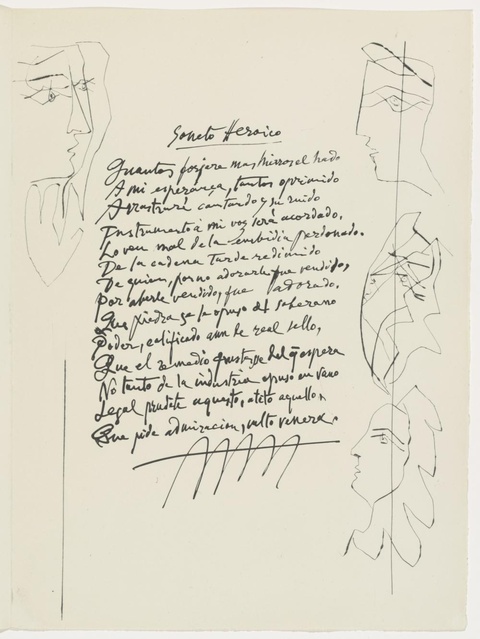 Soneto Heroico
Quantos forjare mas hierros el hado
A mi esperança, tantos oprimido
Arrastraré cantando y su ruido
Instrumento a mi voz será acordado.
Joven mal de la embidia perdonado.
De la cadena tarde redimido
De quien, por no adorarle fue vendido,
Por averle vendido, fue adorado.
Que piedra se le opuso del soberano
Poder, calificado aun de real sello,
Que el remedio frustasse del q espera
No tanto de la industria opuso en vano
Legal aquesto, aquello,
Que pide admiracion, culto venera.